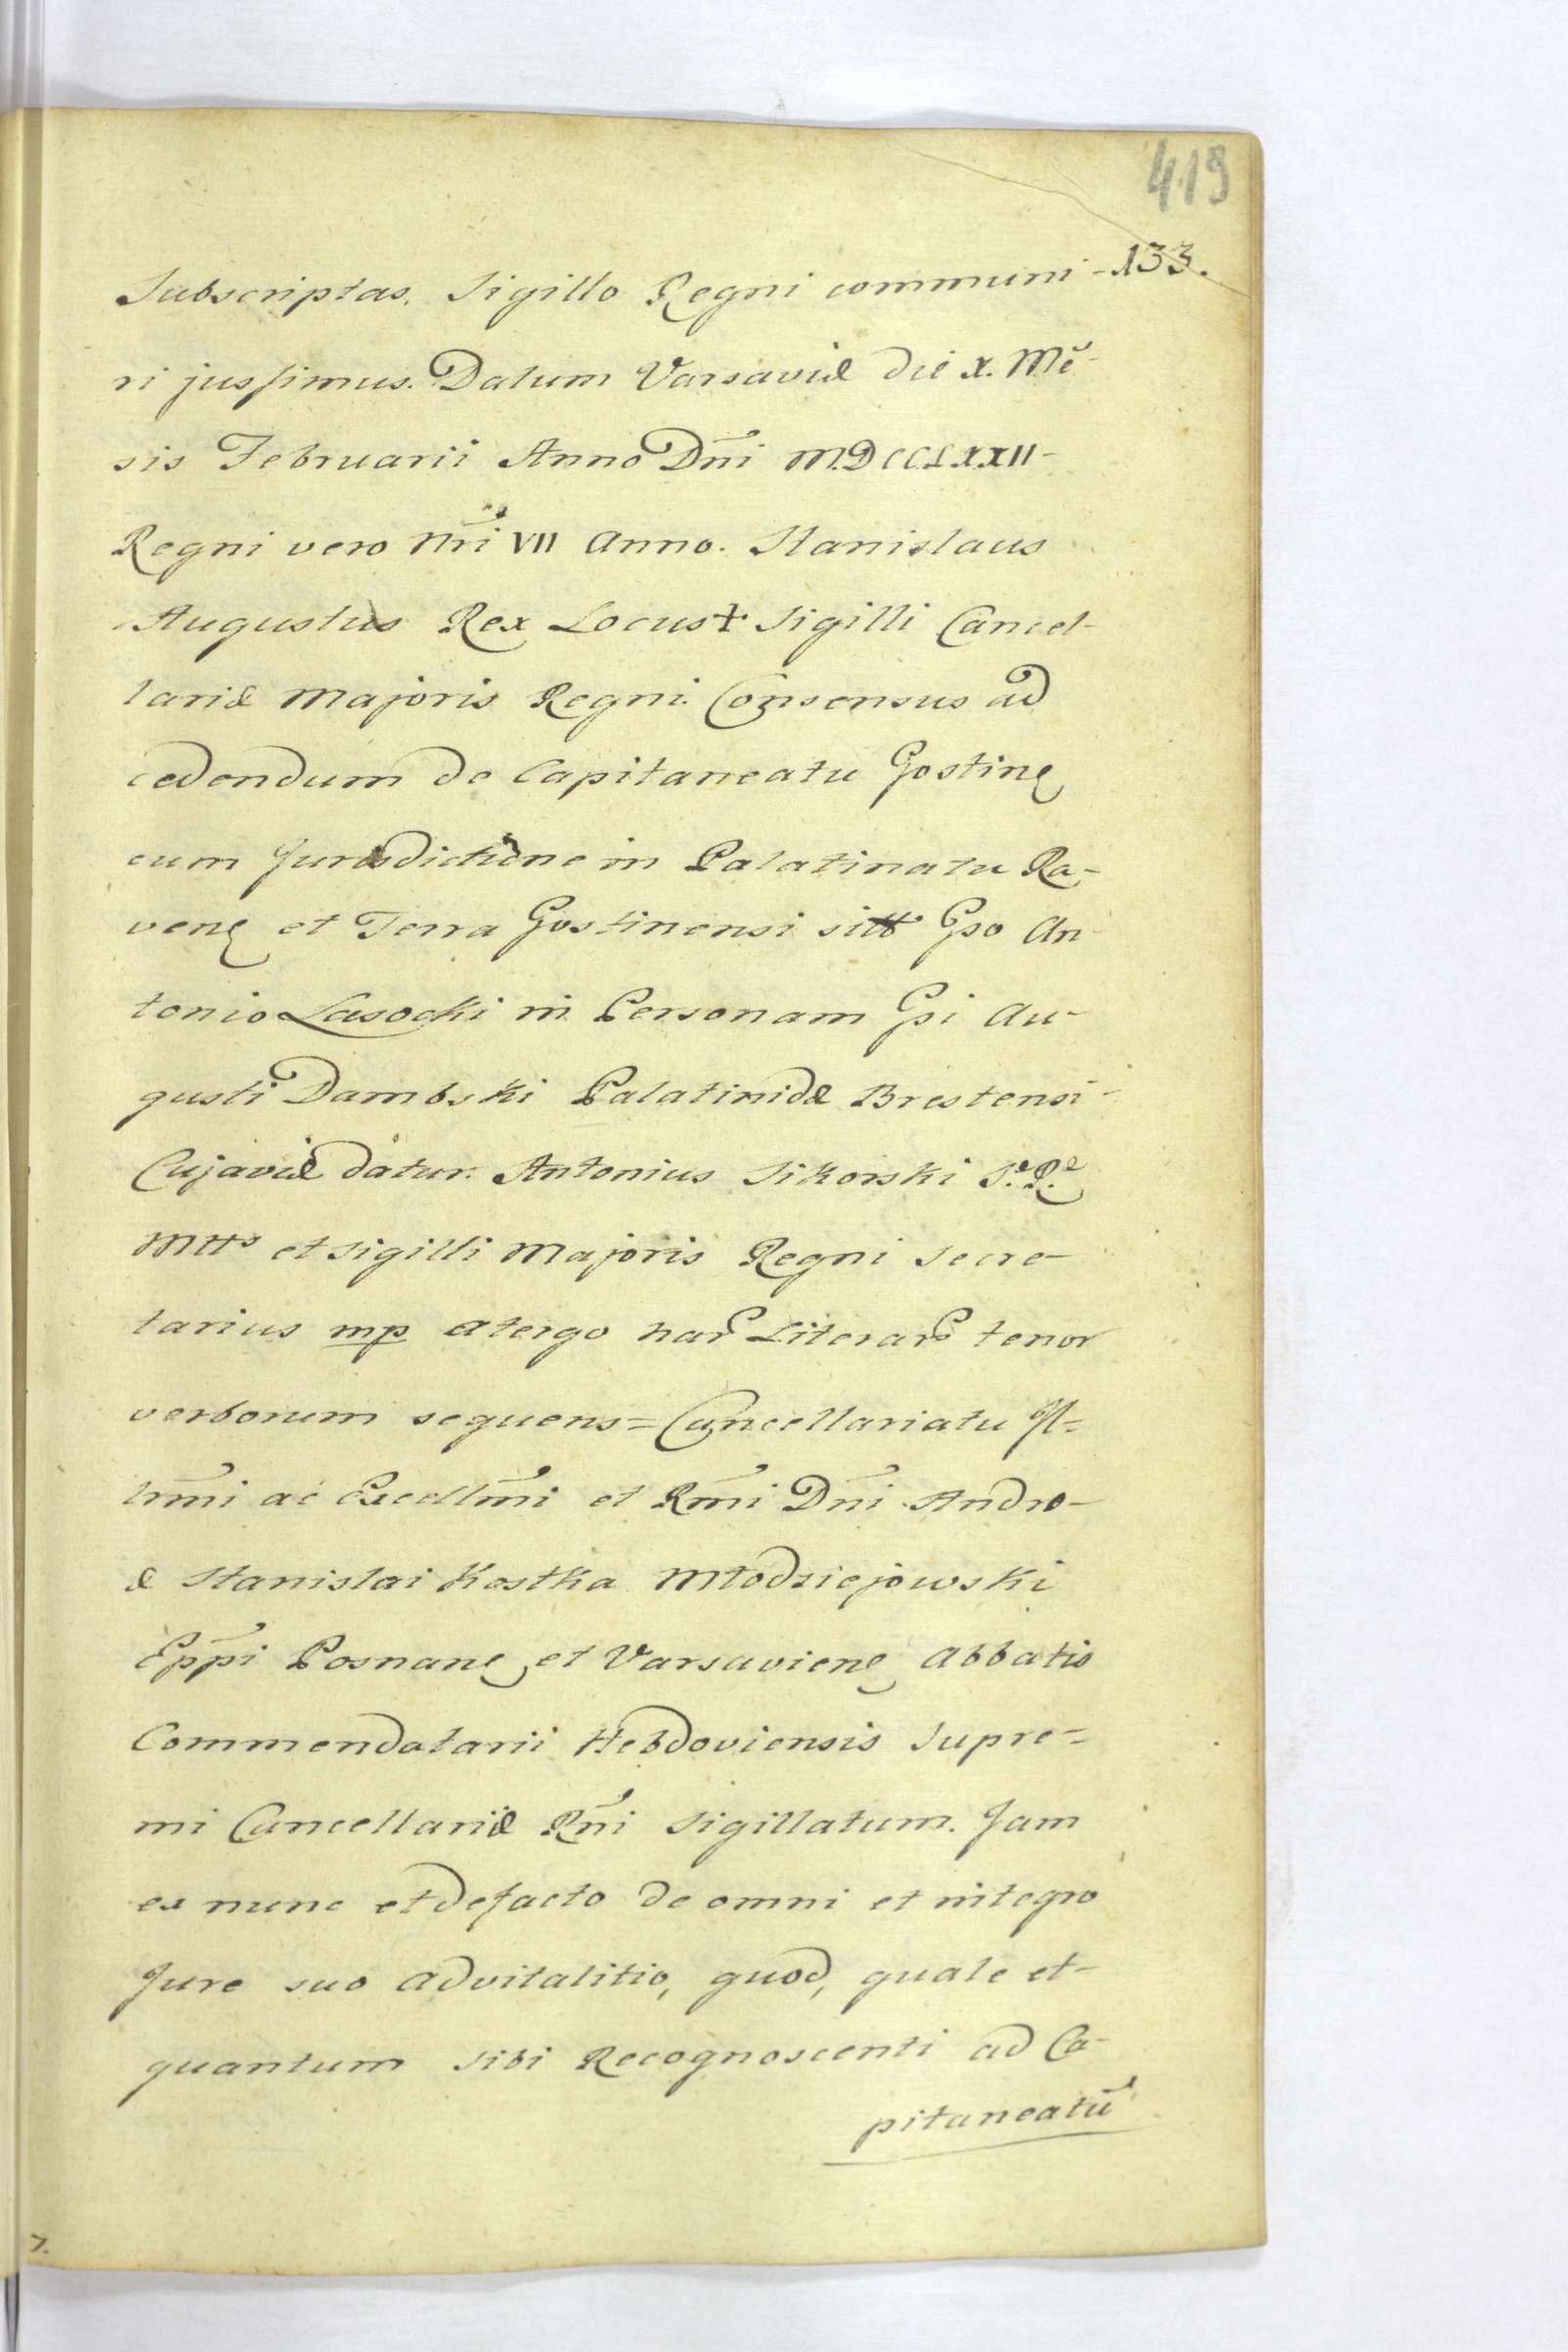 419
133.
Subscriptas. Sigillo Regni communi-
ri jussimus. Datum Varsaviæ die X. Mē-
sis Februarii Anno Dn̄i MDCCLXXII-
Regni vero nr̄i VII Anno. Stanislaus
Augustus Rex Locus + Sigilli Cancel-
lariæ Majoris Regni. Consensus ad
cedendum de Capitaneatu Gostinę
cum Jurisdictione in Palatinatu Ra-
venę et Terra Gostinensi sitto Gso An-
tonio Lasocki in Personam Gsi Au-
gusti Dambski Palatinidæ Brestensi-
Cujaviæ datur. Antonius Sikorski S.æ R.æ
Mtts et Sigilli Majoris Regni Secre-
tarius mp atergo har̄ Literar̄ tenor
verborum sequens = Cancellariatu Il=
lrm̄i ac Excellm̄i et Rm̄i Dn̄i Andre-
æ Stanislai Kostka Młodziejowski
Epp̄i Posnanę et Varsavienę Abbatis
Commendatarii Hebdoviensis Supre=
mi Cancellariiæ Rn̄i Sigillatum. Jam
ex nunc et defacto de omni et integro
Jure suo advitalitio, quod, quale et-
quantum sibi Recognoscenti ad Ca-
pitaneatū